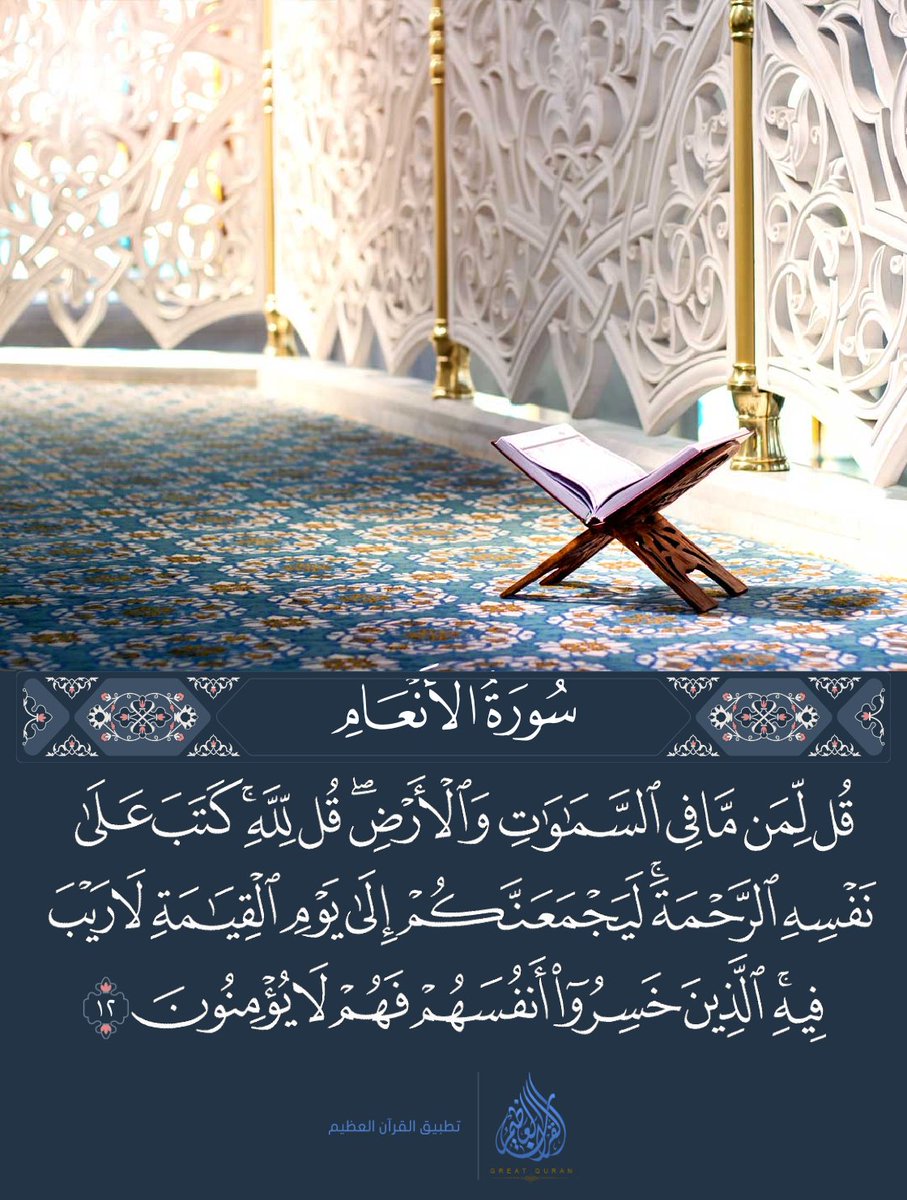 سُورَةُ الأَنْعَامِ
قُل لِّمَن مَّا فِي ٱلسَّمَٰوَٰتِ وَٱلْأَرْضِۖ قُل لِّلَّهِۚ كَتَبَ عَلَىٰ
نَفْسِهِ ٱلرَّحْمَةَۚ لَيَجْمَعَنَّكُمْ إِلَىٰ يَوْمِ ٱلْقِيَٰمَةِ لَا رَيْبَ
فِيهِۚ ٱلَّذِينَ خَسِرُوٓا۟ أَنفُسَهُمْ فَهُمْ لَا يُؤْمِنُونَ ١٢
القرآن العظيم
GREAT QURAN
تطبيق القرآن العظيم